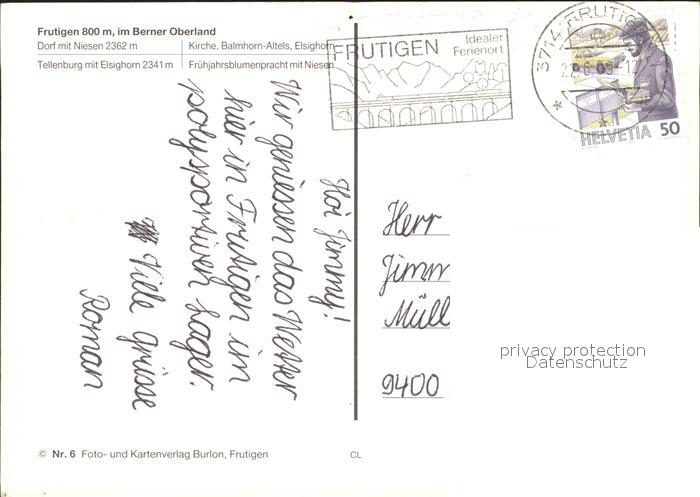 Frutigen 800 m, im Berner Oberland
Dorf mit Niesen 2362 m
Kirche, Balmhorn-Altels, Elsighorn
Tellenburg mit Elsighorn 2341 m
Frühjahrsblumenpracht mit Niesen
FRUTIGEN
Idealer
Ferienort
3714 FRUTIG
HELVETIA 50
Hoi Jimmy!
Wir geniessen das Wetter
hier in Frutigen im
polysportiven Lager.
Viele Grüsse
Roman
Herr
Jimm
Müll
9400
privacy protection
Datenschutz
© Nr. 6 Foto- und Kartenverlag Burlon, Frutigen
CL